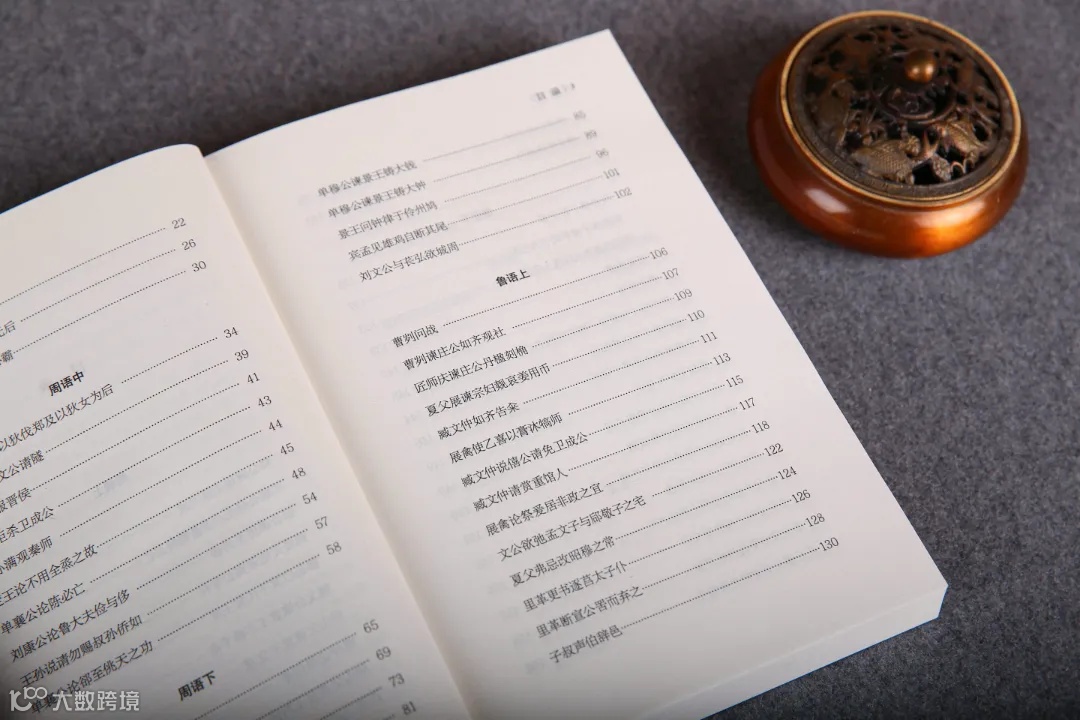 22
后 26
霸 30
周语中
以狄伐郑及以狄女为后 34
文公请隧 39
晋侯 41
杀卫成公 43
孙满观秦师 44
王论不用全烝之故 45
单襄公论陈必亡 48
刘康公论鲁大夫俭与侈 54
王孙说请勿赐叔孙侨如 57
单襄公论郤至佻天之功 58
周语下
65
69
73
81
目录
单穆公谏景王铸大钱 85
单穆公谏景王铸大钟 89
景王问钟律于伶州鸠 96
宾孟见雄鸡自断其尾 101
刘文公与苌弘欲城周 102
鲁语上
曹刿问战 106
曹刿谏庄公如齐观社 107
匠师庆谏庄公丹楹刻桷 109
夏父展谏宗妇觌哀姜用币 110
臧文仲如齐告籴 111
展禽使乙喜以膏沐犒师 113
臧文仲说僖公请免卫成公 115
臧文仲请赏重馆人 117
展禽论祭爰居非政之宜 118
文公欲弛孟文子与郈敬子之宅 122
夏父弗忌改昭穆之常 124
里革更书逐莒太子仆 126
里革断宣公罟而弃之 128
子叔声伯辞邑 130
大数跨境